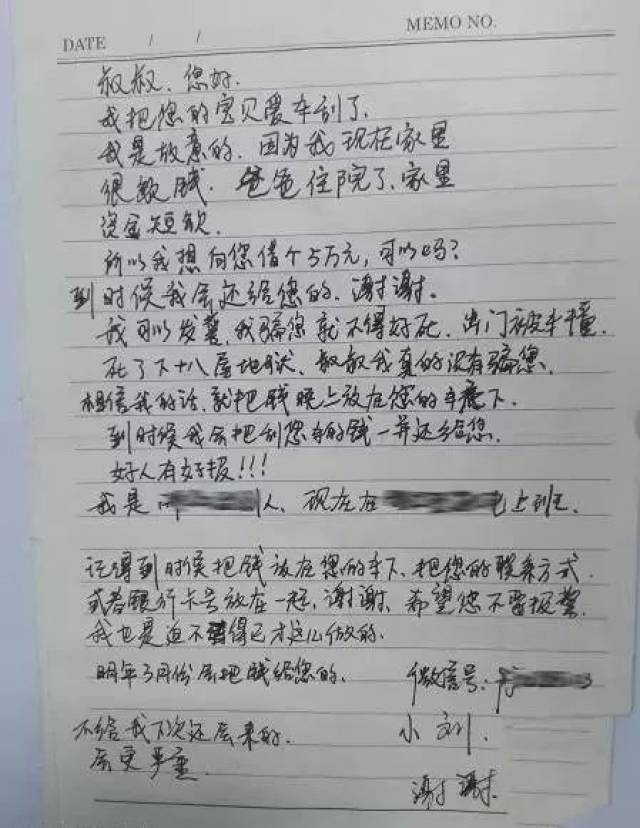 DATE / / MEMO NO.
叔叔、您好.
我把您的宝贝爱车刮了.
我是故意的.因为我现在家里
很缺钱.爸爸住院了、家里
资金短缺.
所以我想向您借个5万元,可以吗?
到时候我会还给您的、谢谢.
我可以发誓,我骗您就不得好死.出门被车撞.
死了下十八层地狱、叔叔我真的没有骗您、
相信我的话、就把钱晚上放在您的车底下.
到时候我会把刮您车的钱一并还给您.
好人有好报!!!
我是 人、现在在 上班.
记得到时候把钱放在您的车下、把您的联系方式.
或者银行卡号放在一起、谢谢、希望您不要报警.
我也是迫不得已才这么做的.
明年3月份会把钱给您的. 微信号: 3
不给我下次还会来的. 小刘
会更严重 谢谢.